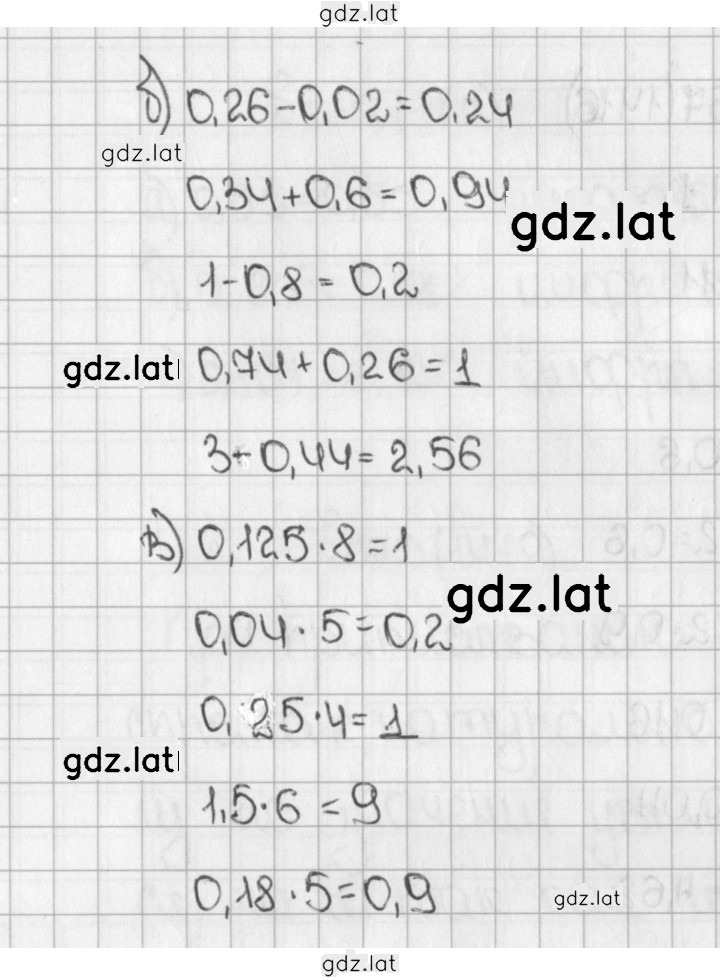 gdz.lat
б) 0,26-0,02=0,24
gdz.lat
0,34+0,6=0,94
gdz.lat
1-0,8=0,2
gdz.lat 0,74+0,26=1
3-0,44=2,56
в) 0,125·8=1
gdz.lat
0,04·5=0,2
0,25·4=1
gdz.lat
1,5·6=9
0,18·5=0,9
gdz.lat
gdz.lat